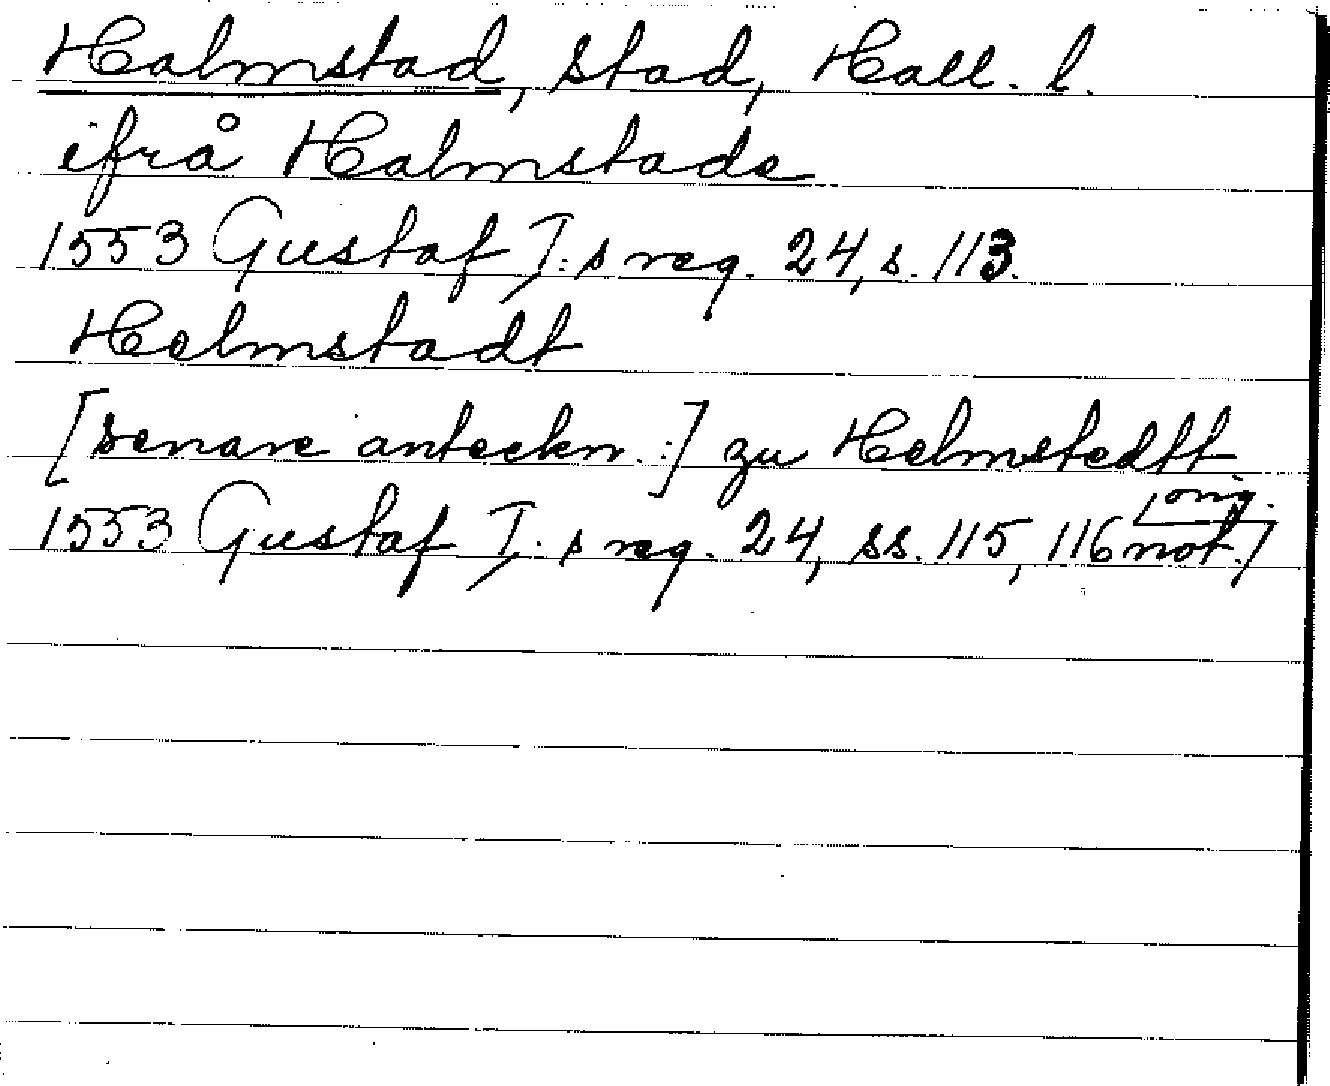 Halmstad, stad, Hall. l.
ifrå Halmstade
1553 Gustaf I:s reg. 24, s. 113.
Helmstadt
[senare anteckn.:] zu Helmstedtt
1553 Gustaf I:s reg. 24, ss. 115, 116 not.]
orig.